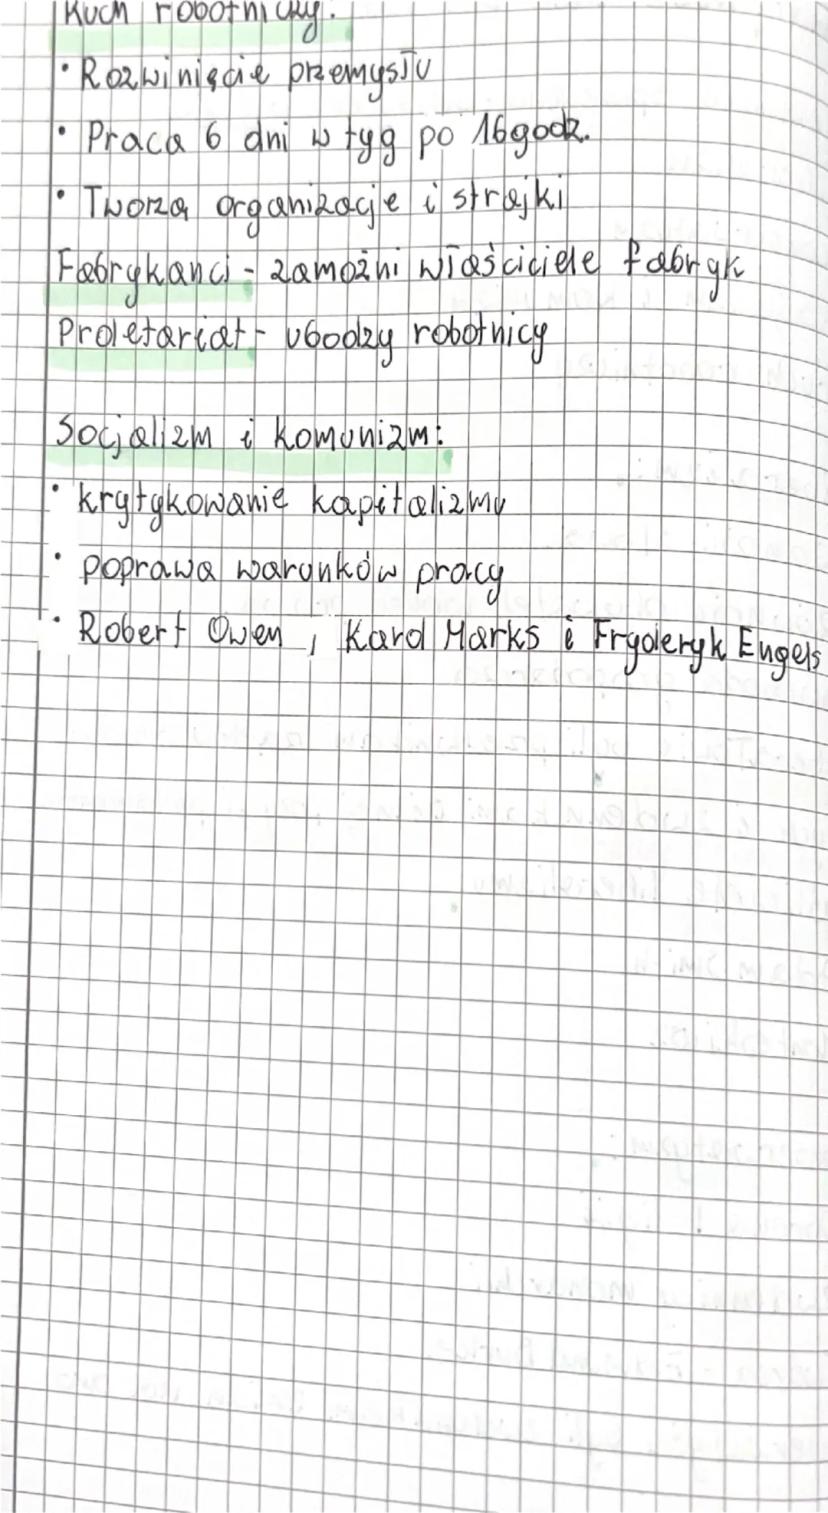 Ruch robotniczy:
• Rozwinięcie przemysłu
• Praca 6 dni w tyg po 16godz.
• Tworzą organizacje i strajki
Fabrykanci - zamożni właściciele fabryk
Proletariat - ubodzy robotnicy
Socjalizm i komunizm:
• krytykowanie kapitalizmu
• poprawa warunków pracy
• Robert Owen, Karol Marks i Fryderyk Engels